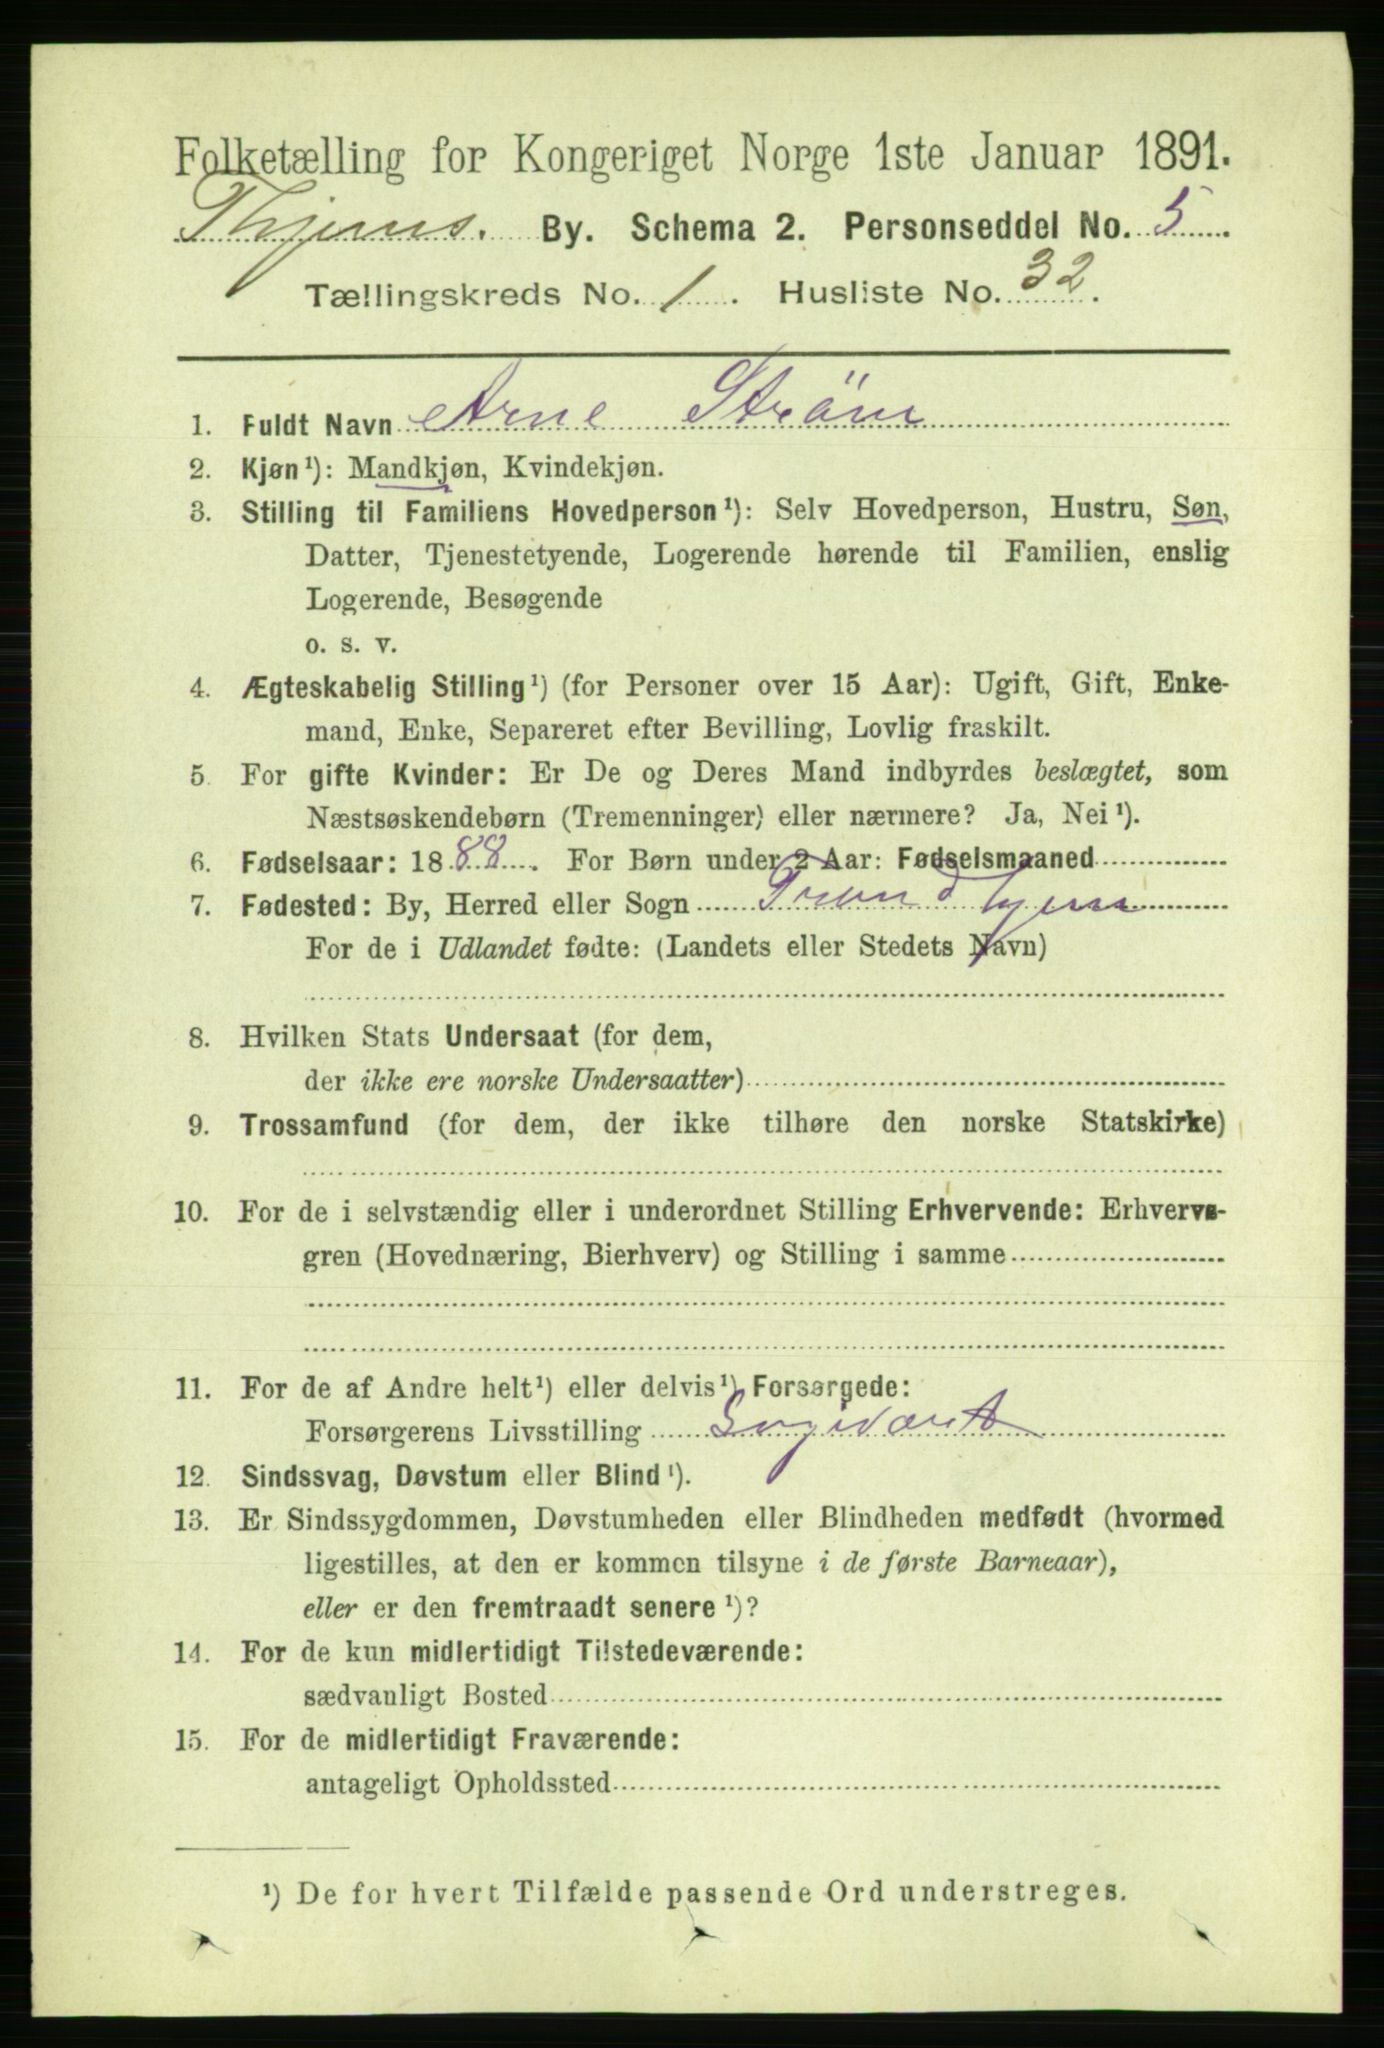 Folketælling for Kongeriget Norge 1ste Januar 1891.
Thjems. By. Schema 2. Personseddel No. 5.
Tællingskreds No. 1. Husliste No. 32.
1. Fuldt Navn Arne Ström
2. Kjøn¹): Mandkjøn, Kvindekjøn.
3. Stilling til Familiens Hovedperson¹): Selv Hovedperson, Hustru, Søn,
Datter, Tjenestetyende, Logerende hørende til Familien, enslig
Logerende, Besøgende
o. s. v.
4. Ægteskabelig Stilling¹) (for Personer over 15 Aar): Ugift, Gift, Enke-
mand, Enke, Separeret efter Bevilling, Lovlig fraskilt.
5. For gifte Kvinder: Er De og Deres Mand indbyrdes beslægtet, som
Næstsøskendebørn (Tremenninger) eller nærmere? Ja, Nei¹).
6. Fødselsaar: 1888. For Børn under 2 Aar: Fødselsmaaned
7. Fødested: By, Herred eller Sogn Trondhjem
For de i Udlandet fødte: (Landets eller Stedets Navn)
8. Hvilken Stats Undersaat (for dem,
der ikke ere norske Undersaatter)
9. Trossamfund (for dem, der ikke tilhøre den norske Statskirke)
10. For de i selvstændig eller i underordnet Stilling Erhvervende: Erhvervs-
gren (Hovednæring, Bierhverv) og Stilling i samme
11. For de af Andre helt¹) eller delvis¹) Forsørgede:
Forsørgerens Livsstilling
12. Sindssvag, Døvstum eller Blind¹).
13. Er Sindssygdommen, Døvstumheden eller Blindheden medfødt (hvormed
ligestilles, at den er kommen tilsyne i de første Barneaar),
eller er den fremtraadt senere¹)?
14. For de kun midlertidigt Tilstedeværende:
sædvanligt Bosted
15. For de midlertidigt Fraværende:
antageligt Opholdssted
¹) De for hvert Tilfælde passende Ord understreges.